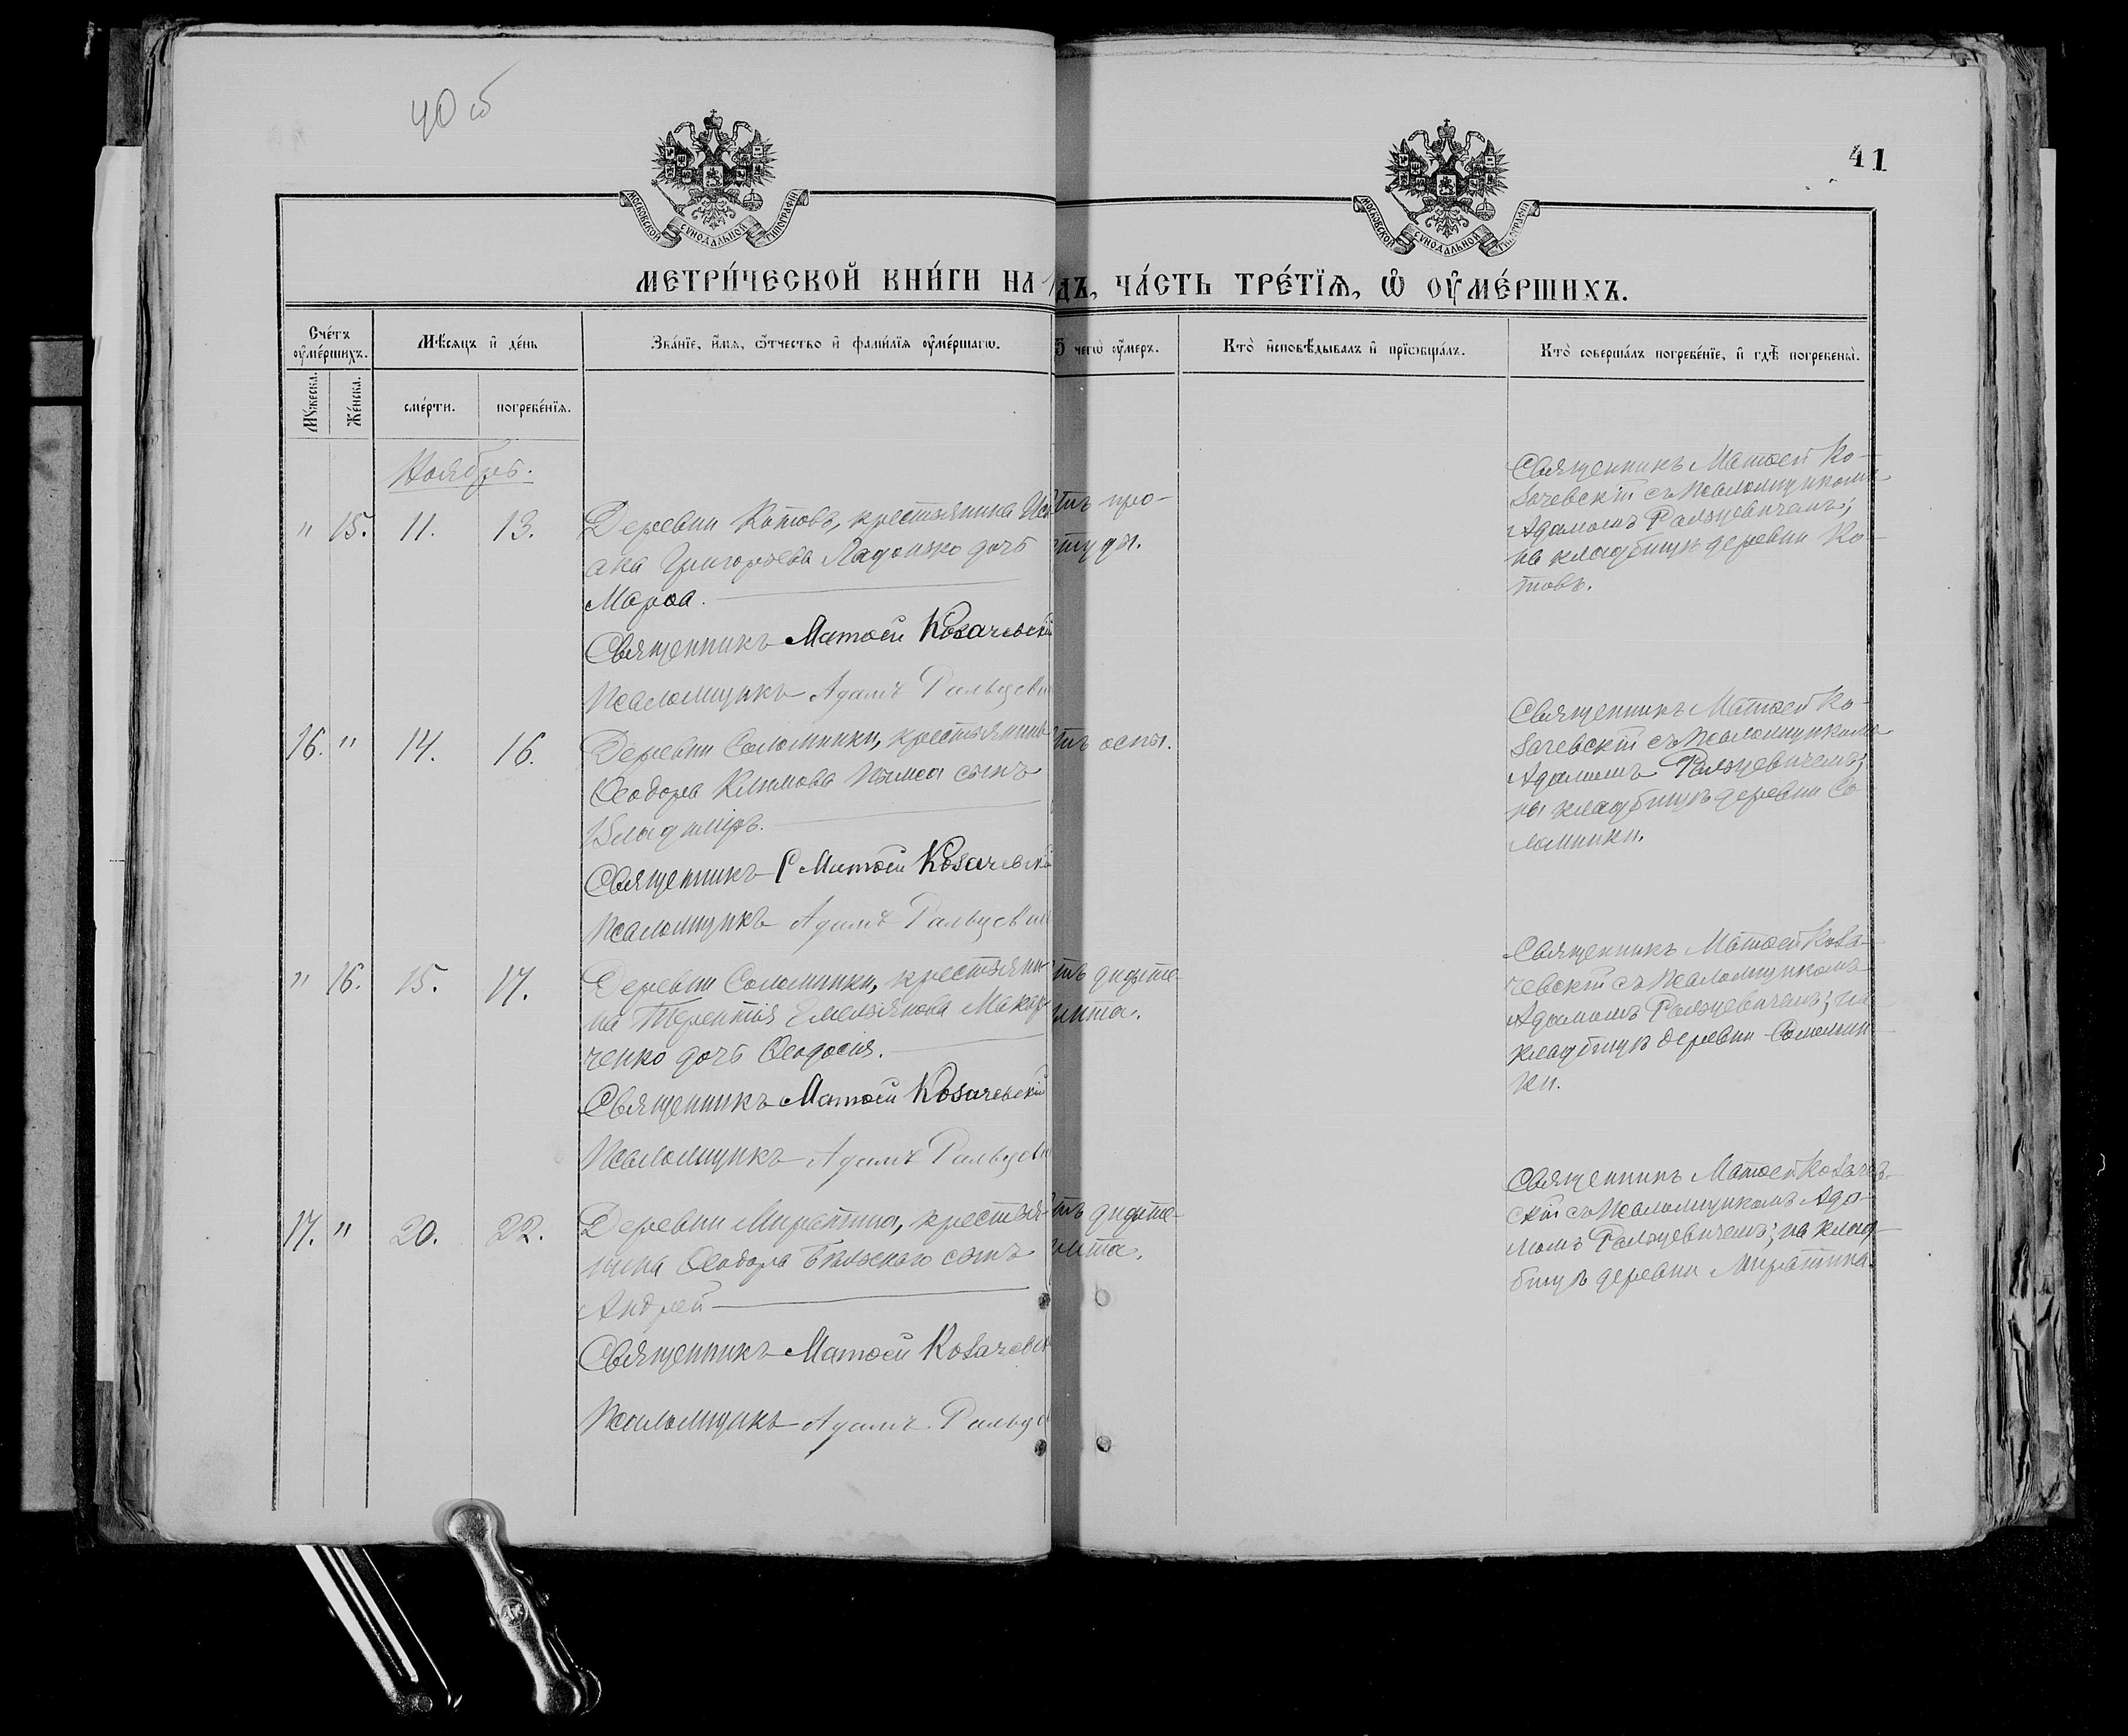 40 об
41
МОСКОВСКОЙ СѴНОДАЛЬНОЙ ТИПОГРАФІИ
МОСКОВСКОЙ СѴНОДАЛЬНОЙ ТИПОГРАФІИ
МЕТРИ́ЧЕСКОЙ КНИ́ГИ НА
ДЪ, ЧА́СТЬ ТРЕ́ТІѦ, Ѡ ОУМЕ́РШИХЪ.
Сче́тъ оуме́ршихъ.
Мѣ́сяцъ и де́нь
Зва́ніе, и́мя, о́тчество и фами́лія оуме́ршагѡ.
чегѡ̀ оу́меръ.
Кто̀ исповѣ́дывалъ и пріѡбща́лъ.
Кто̀ соверша́лъ погребе́ніе, и гдѣ̀ погребены̀.
Мꙋ́жеска.
Же́нска.
сме́рти.
погребе́нія.
Ноябрь.
" 15. 11. 13.
Деревни Котовъ, крестьянина Иса
ака Григорьева Ладонько дочь
Марѳа.
Священникъ Матѳей Козачевскій
Псаломщикъ Адамъ Ральцеви
тъ про-
студы.
Священникъ Матѳей Ко-
зачевскій съ псаломщикомъ
Адамомъ Ральцевичемъ;
на кладбищѣ деревни Ко-
товъ.
16. " 14. 16.
Деревни Соломинки, крестьянина
Ѳеодора Климова сынъ
Владиміръ.
Священникъ Матѳей Козачевскій
Псаломщикъ Адамъ Ральцевич
тъ оспы.
Священникъ Матѳей Ко-
зачевскій съ псаломщикомъ
Адамомъ Ральцевичемъ;
на кладбищѣ деревни Со-
ломинки.
" 16. 15. 17.
Деревни Соломинки, крестьяни-
на Терентія Емельянова Макар-
ченко дочь Ѳеодосія.
Священникъ Матѳей Козачевскій
Псаломщикъ Адамъ Ральцеви
тъ дифте-
рита.
Священникъ Матѳей Коза-
чевскій съ псаломщикомъ
Адамомъ Ральцевичемъ; на
кладбищѣ деревни Соломин-
ки.
17. " 20. 22.
Деревни Миратина, крестья-
нина Ѳеодора Бѣльскаго сынъ
Андрей
Священникъ Матѳей Козачевск
Псаломщикъ Адамъ Ральце
тъ дифте-
рита.
Священникъ Матѳей Козачев-
скій съ псаломщикомъ Ада-
момъ Ральцевичемъ; на клад-
бищѣ деревни Миратина.